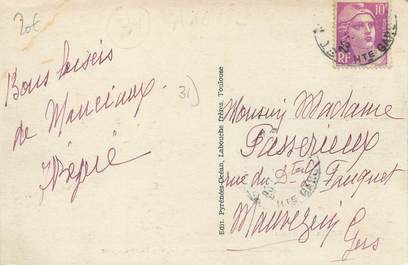 20€
31)
Bons baisers
de Mancioux.
31)
Edit. Pyrénées-Océan, Labouche frères, Toulouse
10F
RF
Monsieur Madame
Passerieux
rue du
Mauvezin
Gers